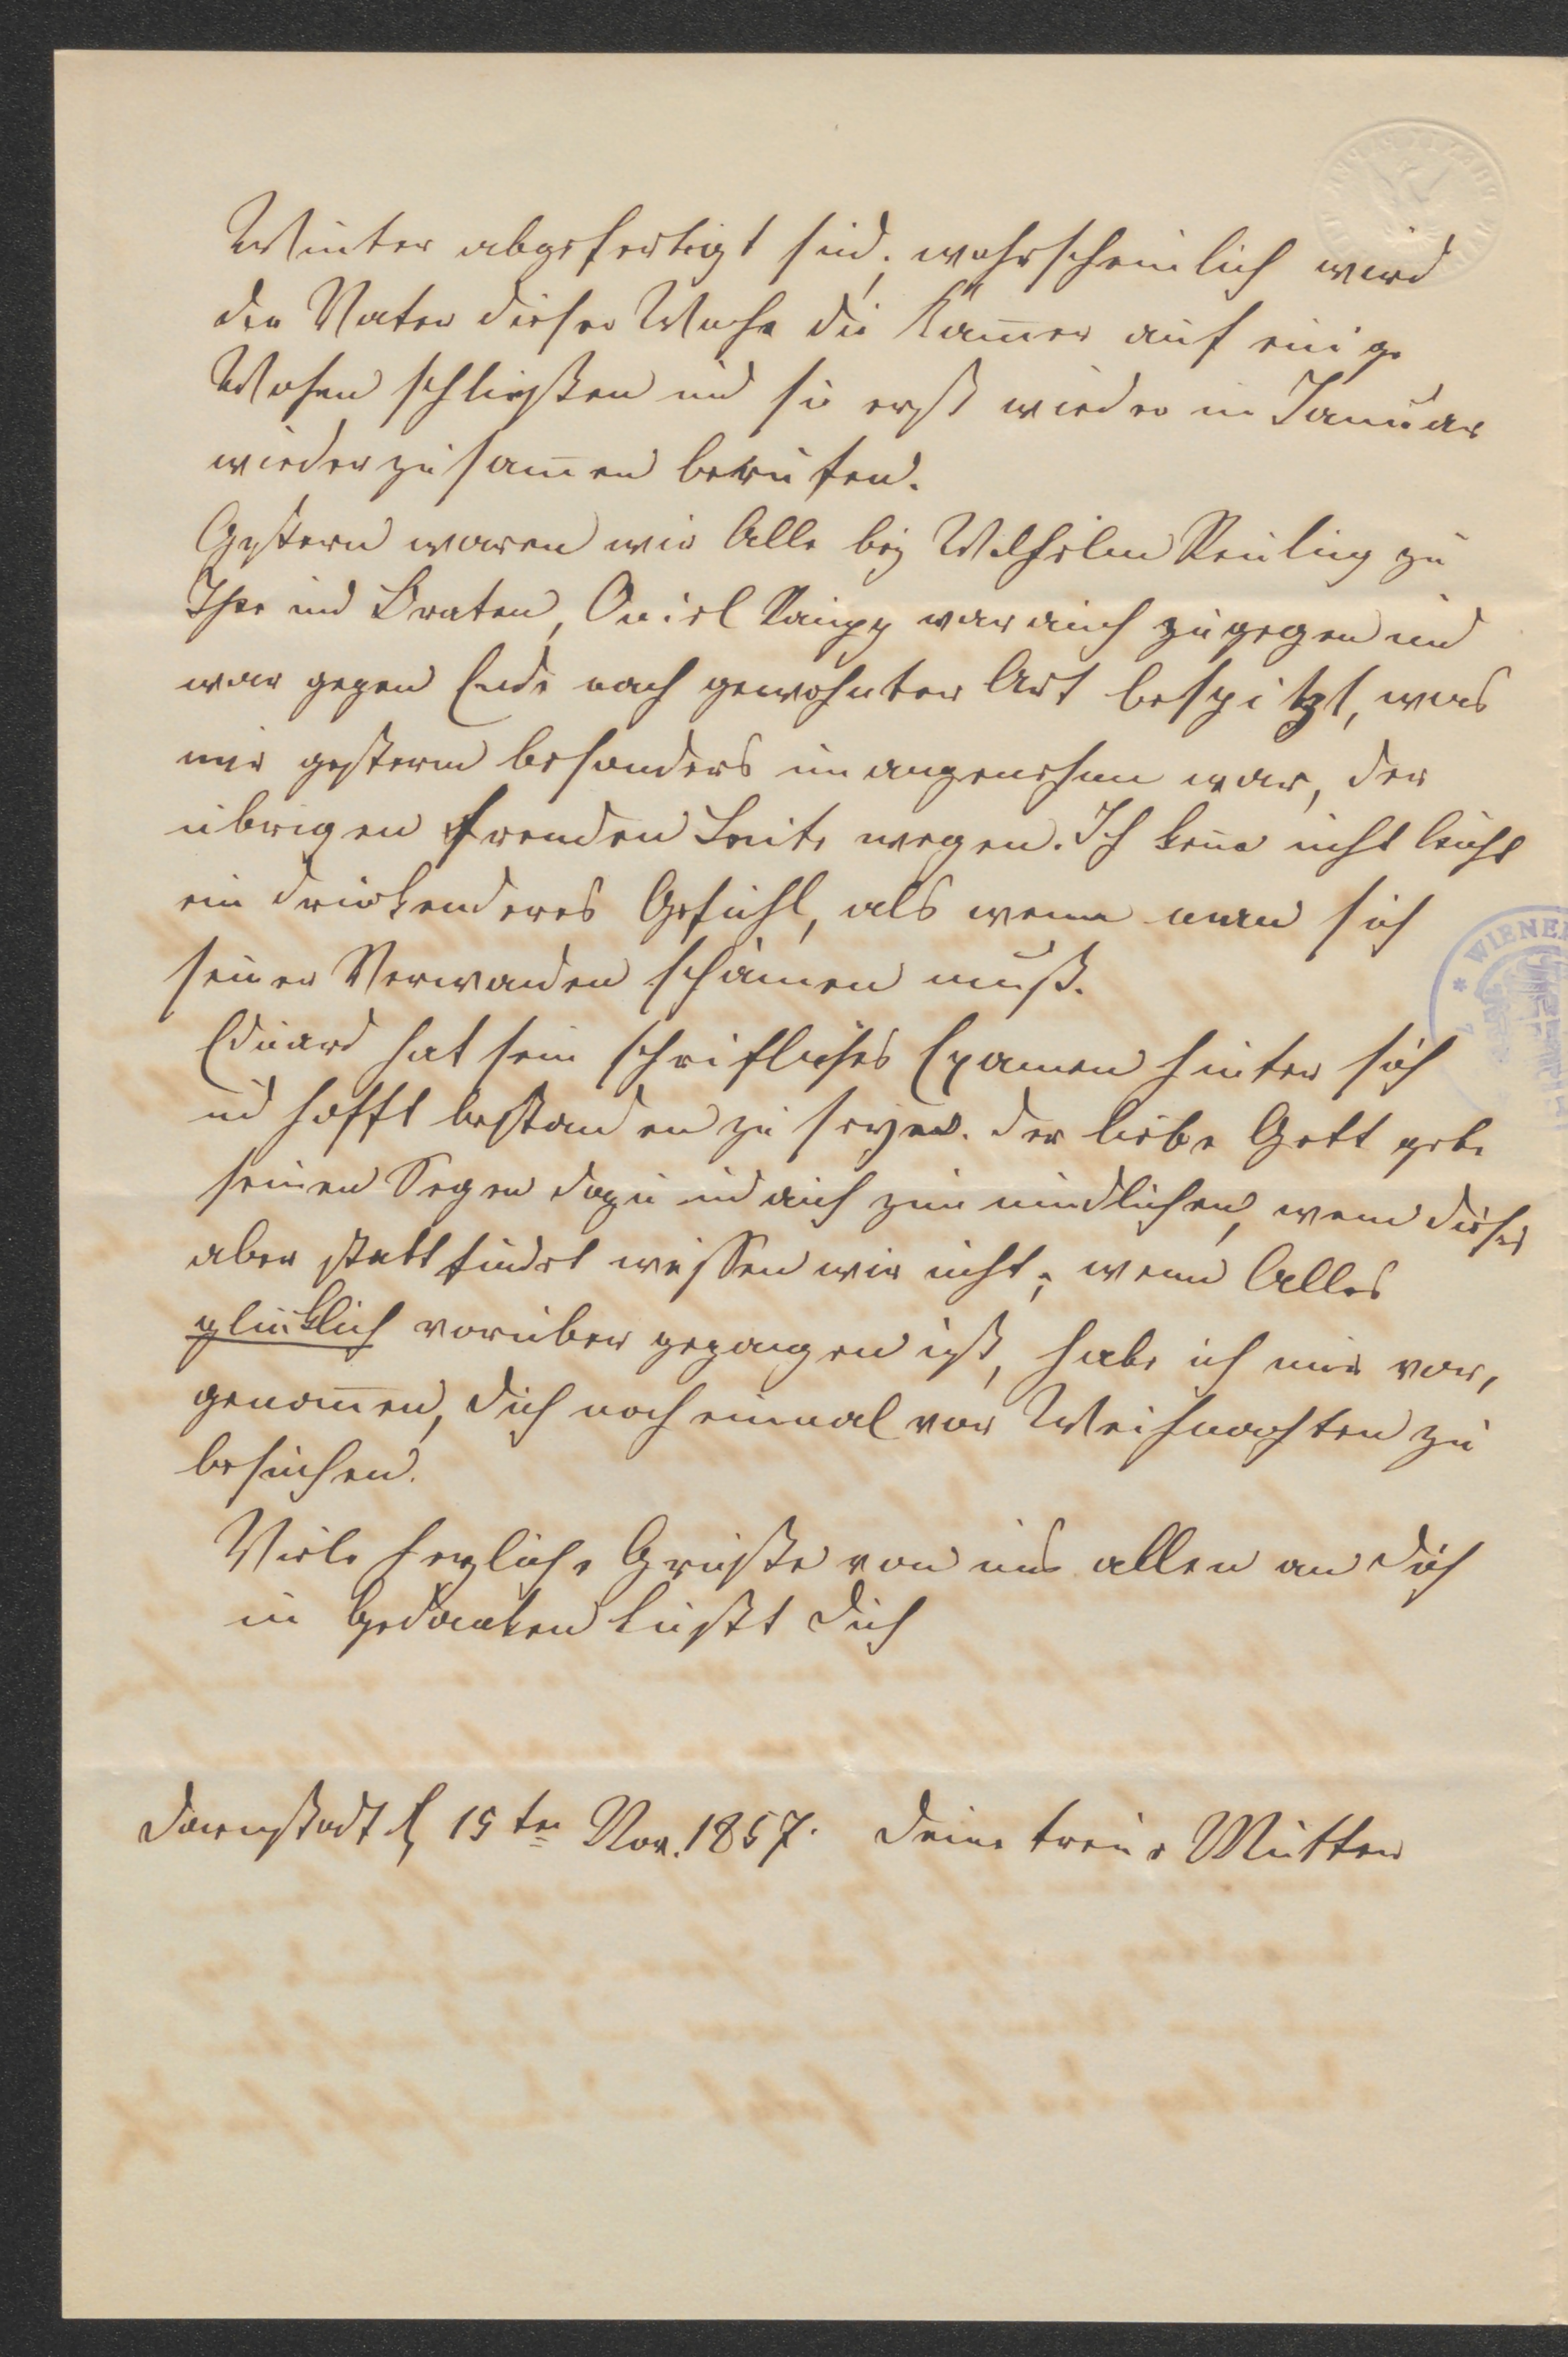 Winter abgefertigt sind; wahrscheinlich wird
der Vater dieser Woche die Kam̅er auf einige
Wochen schließen und sie erst wieder im Januar
wiederzusam̅en berufen.
Gestern waren wir Alle bey Wilhelm Reuling zu
Thee und Braten, Onkel war auch zugegen und
war gegen Ende nach gewohnter Art bespitzt, was
mir gestern besonders unangenehm war, der
übrigen fremden Leute wegen. Ich ken̅e nicht leicht
ein drückenderes Gefühl, als wenn man sich
seiner Verwanden schämen muß.
Eduard hat sein schriftliches Examen hinter sich
und hofft bestanden zu seyen. Der liebe Gott gebe
seinen Segen dazu und auch zum mündlichen, wenn dieses
aber stattfindet wissen wir nicht; wenn Alles
glücklich vorüber gegangen ist, habe ich mir vor,
genom̅en, Dich noch einmal vor Weihnachten zu
besuchen.
Viele herzliche Grüße von uns allen an Dich
in Gedanken küßt Dich
Darmstadt d 15ten Nov. 1857. Deine treue Mutter
* WIENER